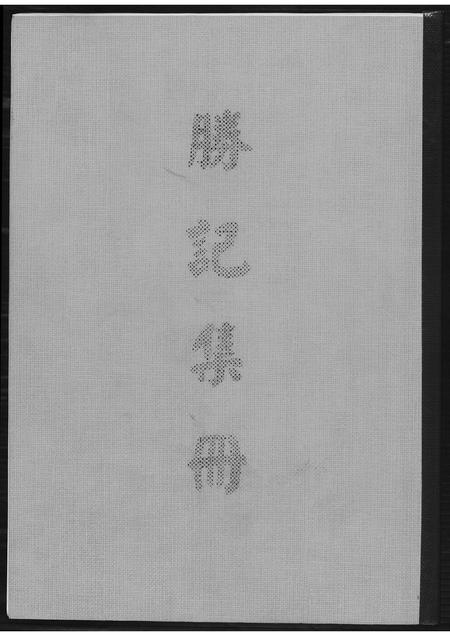 勝記集冊